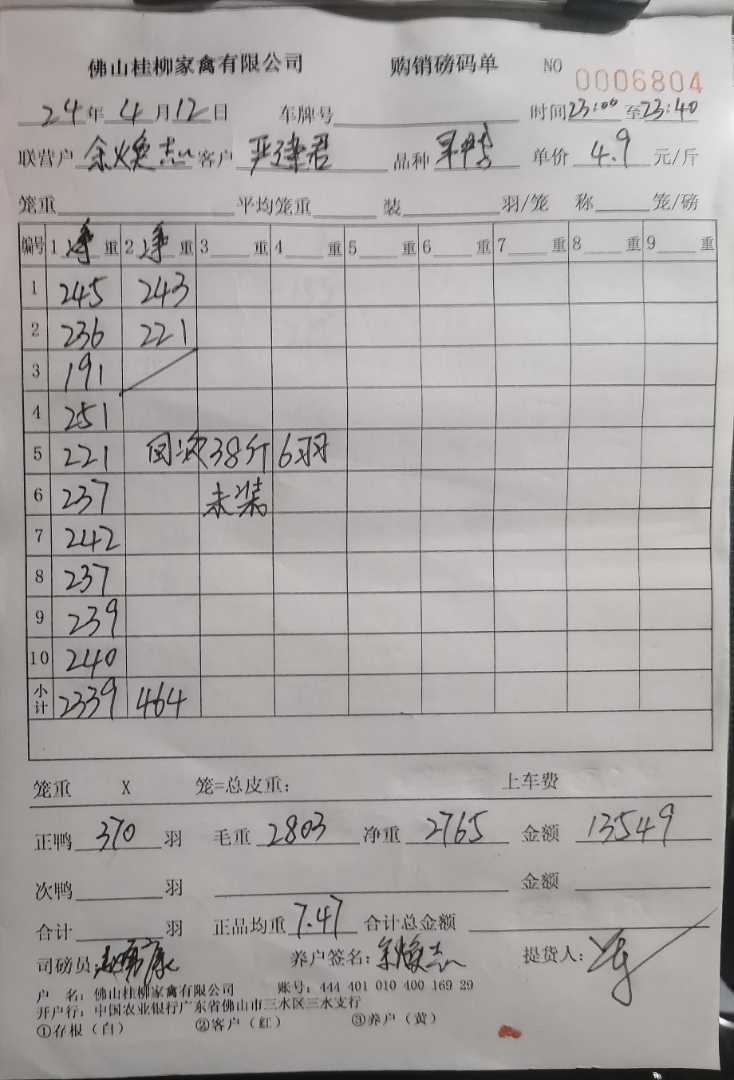 佛山桂柳家禽有限公司 购销磅码单 NO 0006804
24年4月12日 车牌号 时间23:00至23:40
联营户 余焕志 客户 严建君 品种 单价 4.9 元/斤
笼重 平均笼重 装 羽/笼 称 笼/磅
编号 1 净 重 2 净 重 3 重 4 重 5 重 6 重 7 重 8 重 9 重
1 245 243
2 236 221
3 191
4 251
5 221 回次38斤6羽
6 237 未装
7 242
8 237
9 239
10 240
小计 2339 464
笼重 X 笼=总皮重: 上车费
正鸭 370 羽 毛重 2803 净重 2765 金额 13549
次鸭 羽 金额
合计 羽 正品均重 7.47 合计总金额
司磅员: 养户签名: 余焕志 提货人:
户 名: 佛山桂柳家禽有限公司 账号: 444 401 010 400 169 29
开户行: 中国农业银行广东省佛山市三水区三水支行
①存根（白） ②客户（红） ③养户（黄）